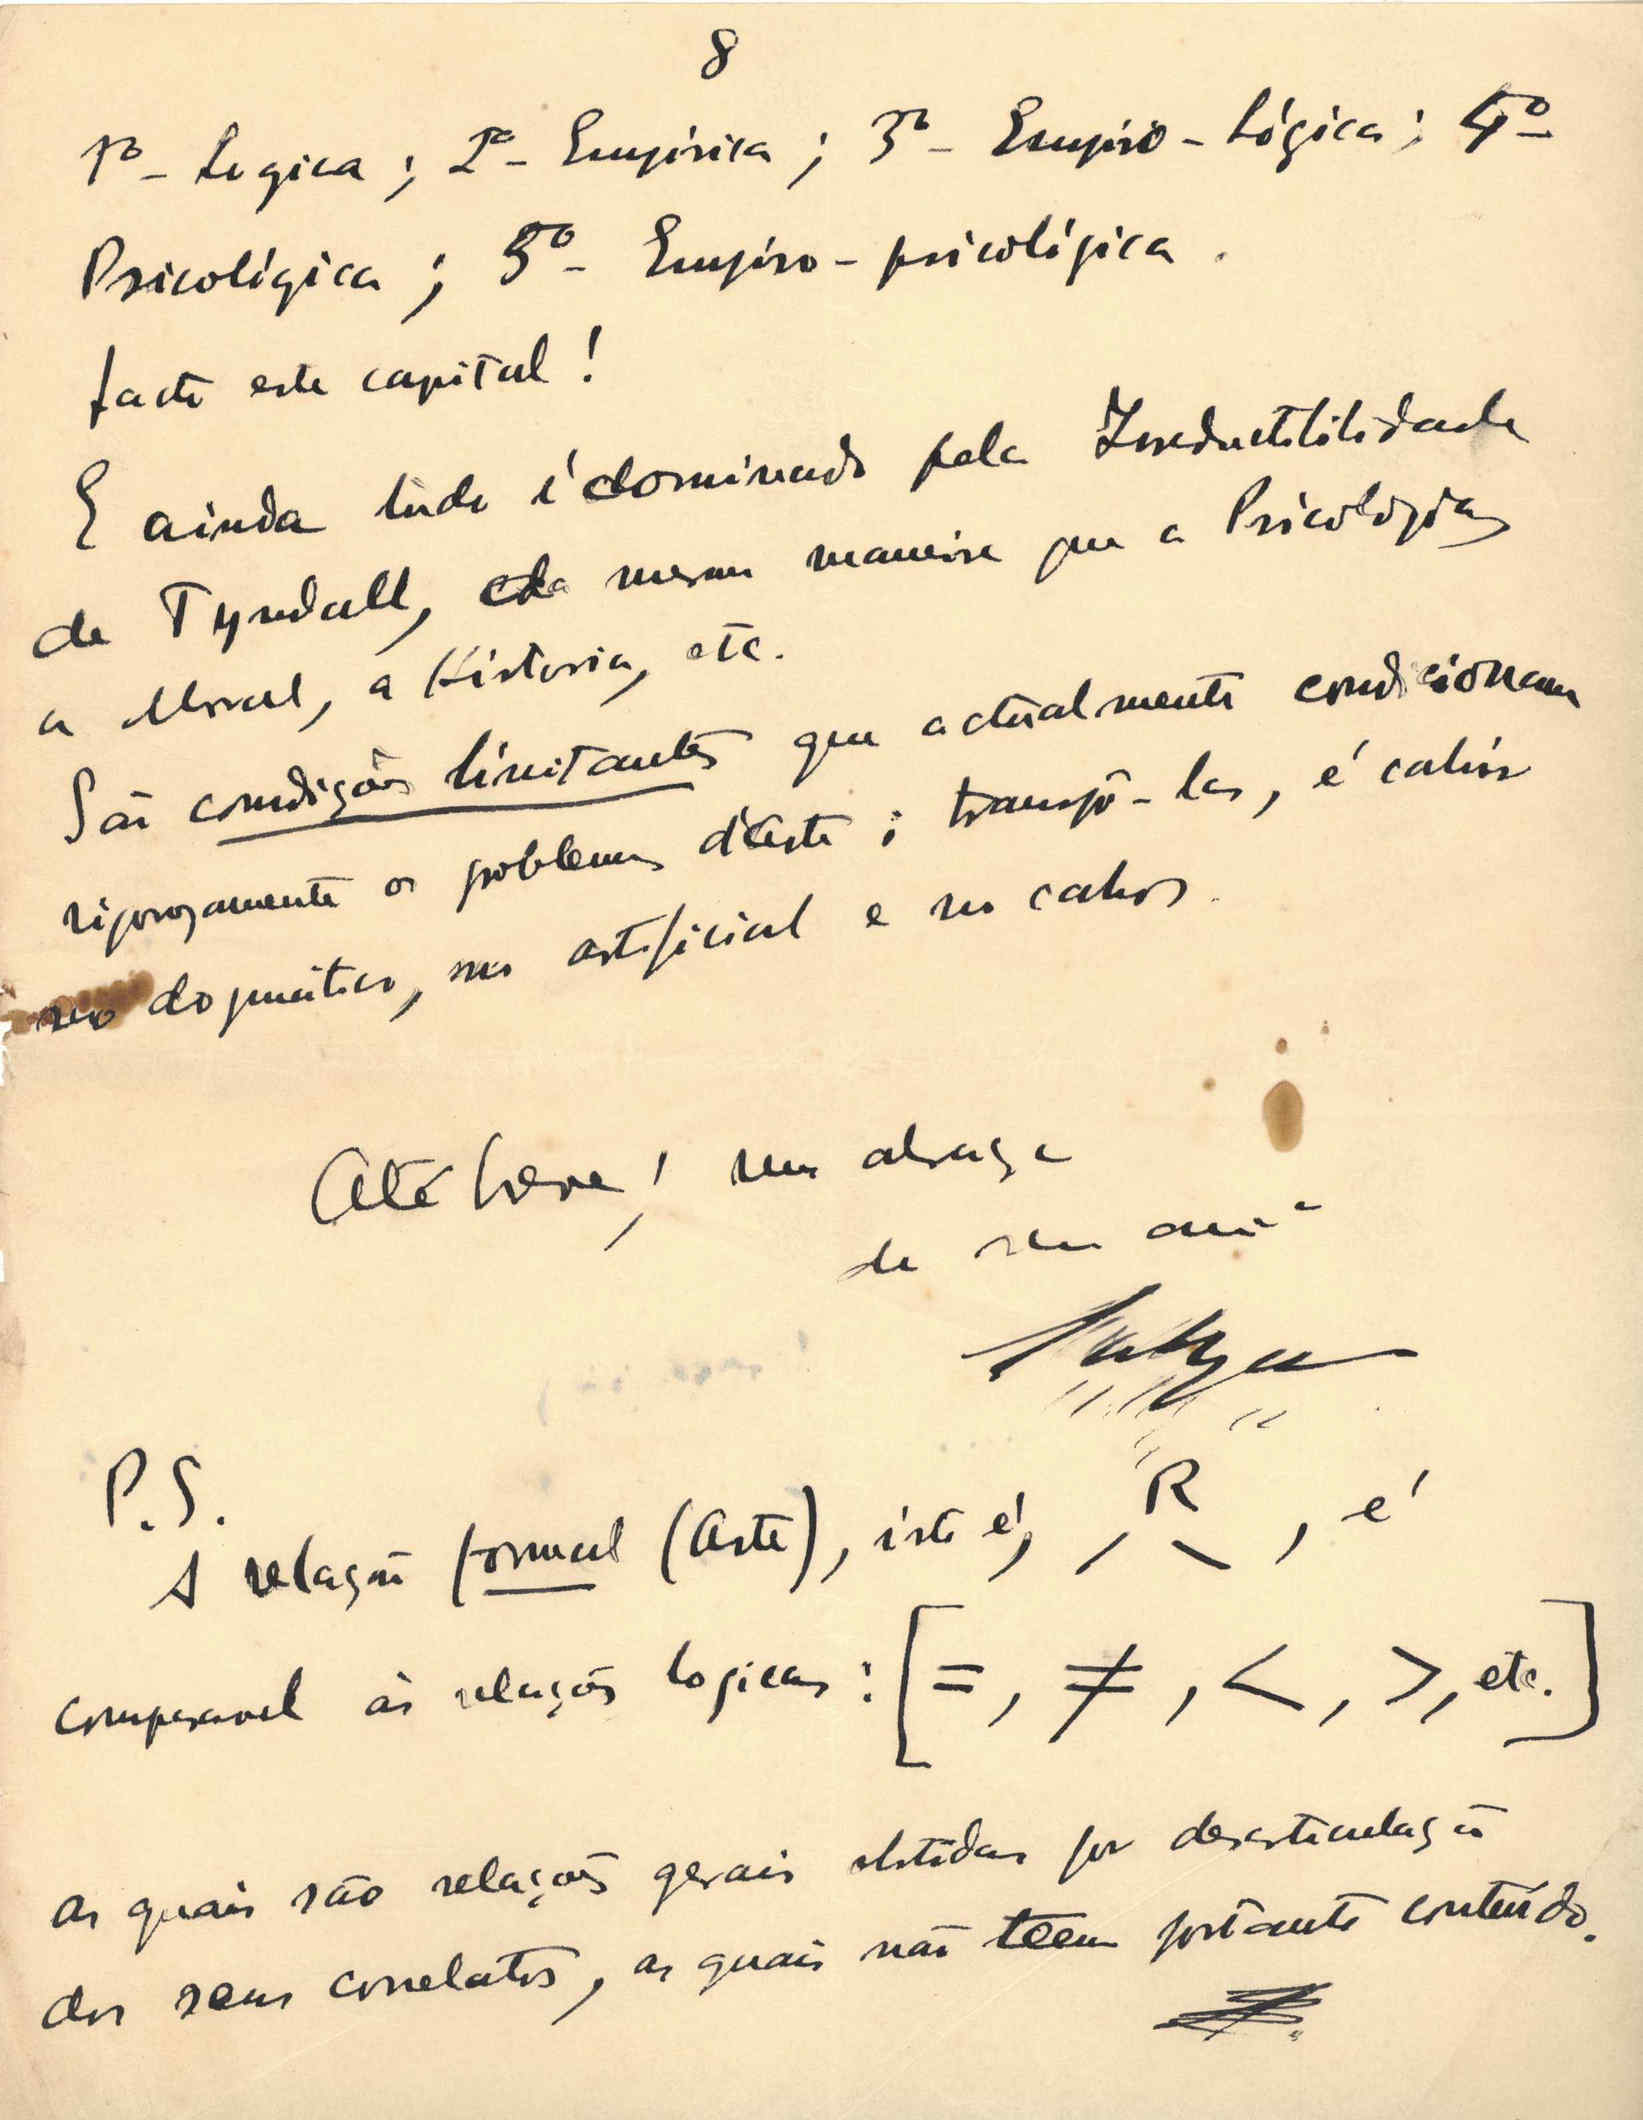 8
1º - Logica ; 2º - Empirica ; 3º - Empirio - Lógica ; 4º -
Psicológica ; 5º - Empiro - psicológica .
facto este capital !
E ainda tudo é dominado pela Irreductibilidade
de Tyndall, da mesma maneira que a Psicologia,
a Moral, a Historia, etc.
São condições limitantes que actualmente condicionam
rigorozamente os problemas d'Arte ; transpô-las, é cahir
no dogmatico, no artificial e no cahos .
Até breve, um abraço
de seu am.º
P.S.
A relação formal (Arte), isto é, R , é
comparavel às relações logicas : [ = , ≠ , < , >, etc. ]
as quais são relações gerais obtidas por desarticulação
dos seus correlatos, as quais não teem portanto conteúdo.